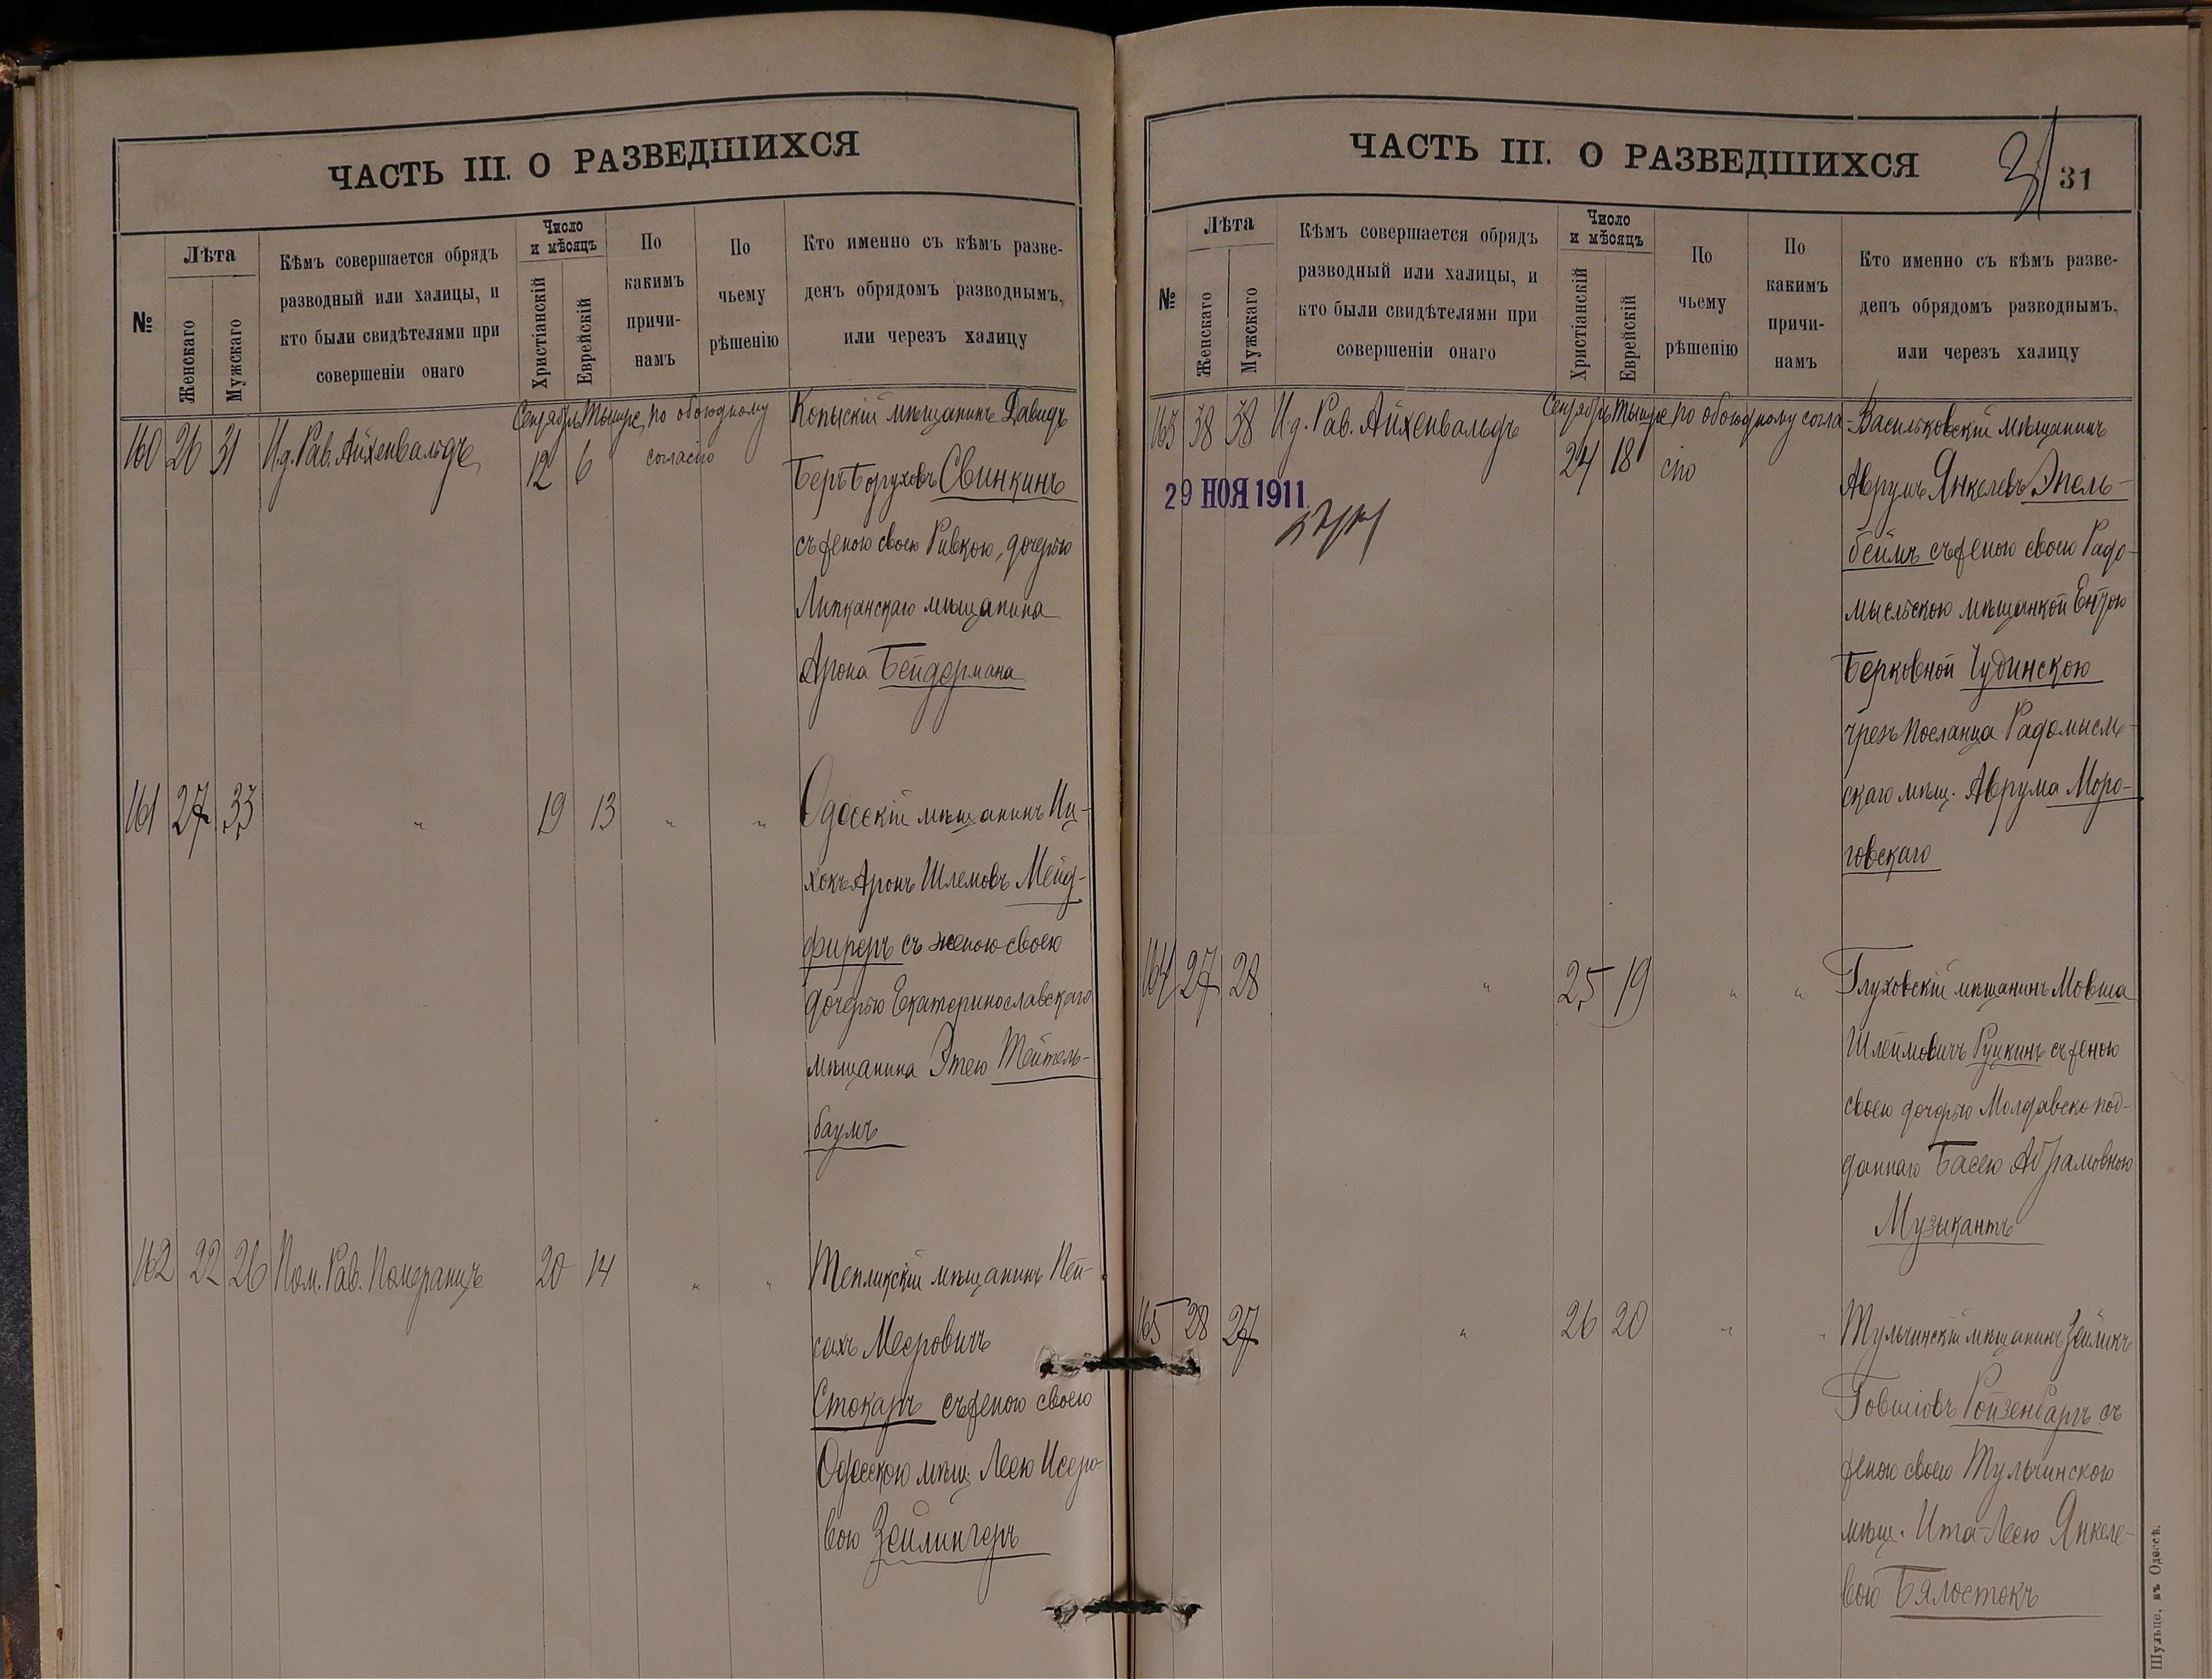 ЧАСТЬ III. О РАЗВЕДШИХСЯ
№
Лѣта
Женскаго
Мужскаго
Кѣмъ совершается обрядъ
разводный или халицы, и
кто были свидѣтелями при
совершеніи онаго
Число
и мѣсяцъ
Христіанскій
Еврейскій
По
какимъ
причи-
намъ
По
чьему
рѣшенію
Кто именно съ кѣмъ разве-
денъ обрядомъ разводнымъ,
или черезъ халицу
160 26 31 И.д. Рав. Айхенвальдъ
Сентябрь Тишре
12 6
по обоюдному
согласію
Копыскій мѣщанинъ Давидъ
Беръ Боруховъ Свинкинъ
съ женою своею Ривкою, дочерью
Липканскаго мѣщанина
Арона Бейдермана
161 27 33 " 19 13 " "
Одесскій мѣщанинъ Иц-
хокъ Аронъ Шлемовъ Мейд-
фиреръ съ женою своею
дочерью Екатеринославскаго
мѣщанина Этею Тейтель-
баумъ
162 22 26 Пом. Рав. Померанцъ 20 14 " "
Тепликскій мѣщанинъ Пей-
сахъ Мееровичъ
Стокаръ съ женою своею
Одесскою мѣщ. Леею Исеро-
вою Зейлингеръ
ЧАСТЬ III. О РАЗВЕДШИХСЯ
31
31
№
Лѣта
Женскаго
Мужскаго
Кѣмъ совершается обрядъ
разводный или халицы, и
кто были свидѣтелями при
совершеніи онаго
Число
и мѣсяцъ
Христіанскій
Еврейскій
По
чьему
рѣшенію
По
какимъ
причи-
намъ
Кто именно съ кѣмъ разве-
денъ обрядомъ разводнымъ,
или черезъ халицу
163 38 38 И.д. Рав. Айхенвальдъ
Сентябрь Тишре
24 18
по обоюдному согла-
сію
29 НОЯ 1911
Васильковскій мѣщанинъ
Аврумъ Янкелевъ Эпель-
беймъ съ женою своею Радо-
мысльскою мѣщанкой Ентою
Берковной Чудинскою
чрезъ посланца Радомысль-
скаго мѣщ. Аврума Моро-
говскаго
164 27 28 " 25 19 " "
Глуховскій мѣщанинъ Мовша
Шлеймовичъ Руцкинъ съ женою
своею дочерью Молдавско под-
даннаго Басею Абрамовною
Музыкантъ
165 28 27 " 26 20 " "
Тульчинскій мѣщанинъ Зейликъ
Говшіовъ Ройзенбаргъ съ
женою своею Тульчинскою
мѣщ. Ита-Леею Янкеле-
вою Бялостокъ
Шульце, въ Одессѣ.